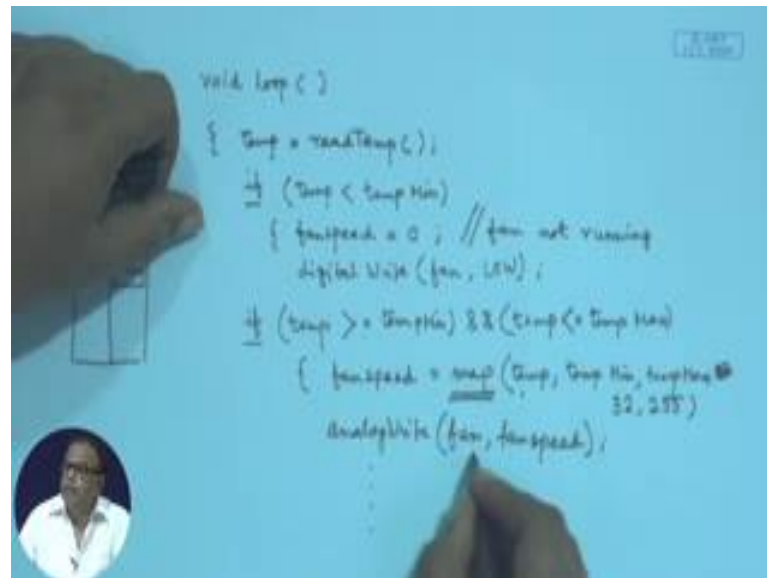 void loop ( )
{ temp = readTemp ( ) ;
if (temp < tempMin)
{ fanspeed = 0 ; // fan not running
digital Write (fan, LOW) ;
if (temp >= tempMin) && (temp <= tempMax)
{ fanspeed = map (temp, temp Min, tempMax
32, 255)
analogWrite (fan, fanspeed) ;